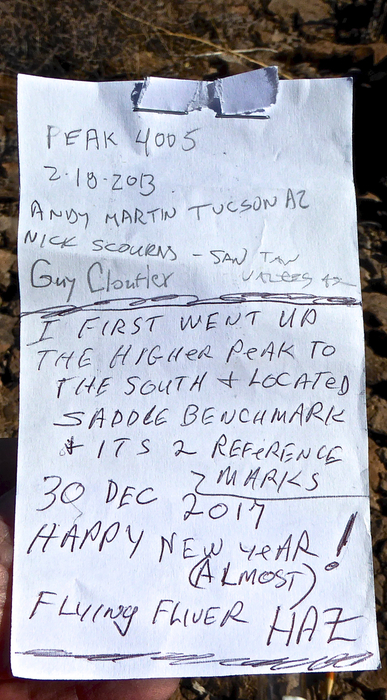 PEAK 4005
2-18-2013
ANDY MARTIN TUCSON AZ
NICK SCOURAS - SAN TAN
VALLEY AZ
Guy Cloutier
I FIRST WENT UP
THE HIGHER PEAK TO
THE SOUTH & LOCATED
SADDLE BENCHMARK
& ITS 2 REFERENCE
MARKS
30 DEC 2017
HAPPY NEW YEAR!
(ALMOST)
FLYING FLIVER HAZ